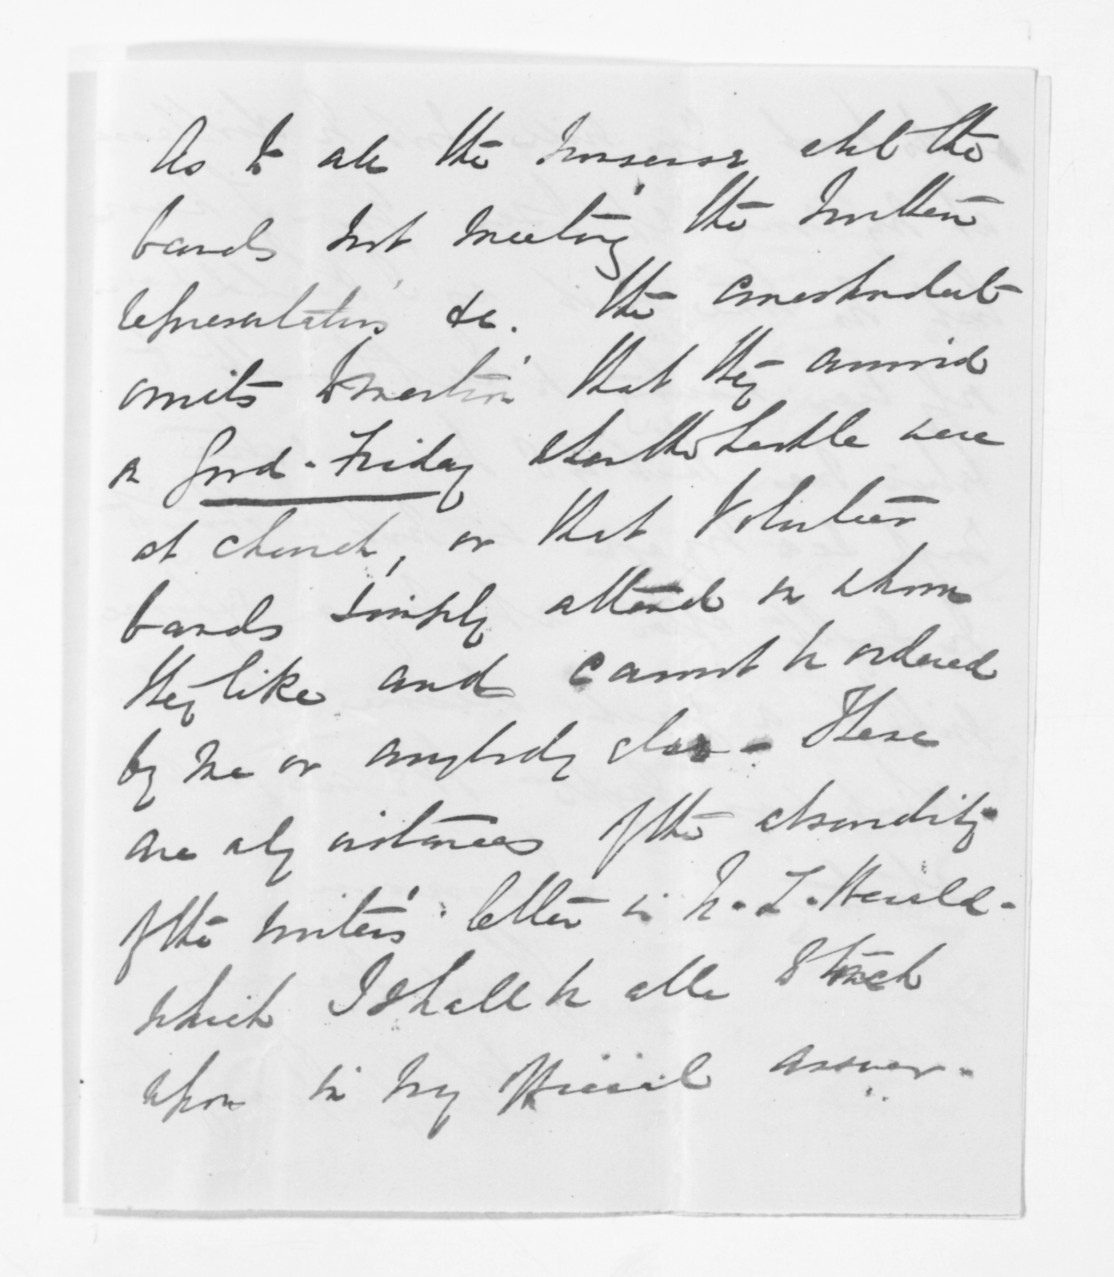 As to all the nonsense abt the
bands not meeting the Northern
representatives &c. the correspondent
omits to mention that they arrived
on Good-Friday when the people were
at church, or that Volunteer
bands simply attend on whom
they like and cannot be ordered
by me or anybody else - These
are only instances of the absurdity
of the writer's letter in N. Z. Herald -
which I shall be able to touch
upon in my official answer -